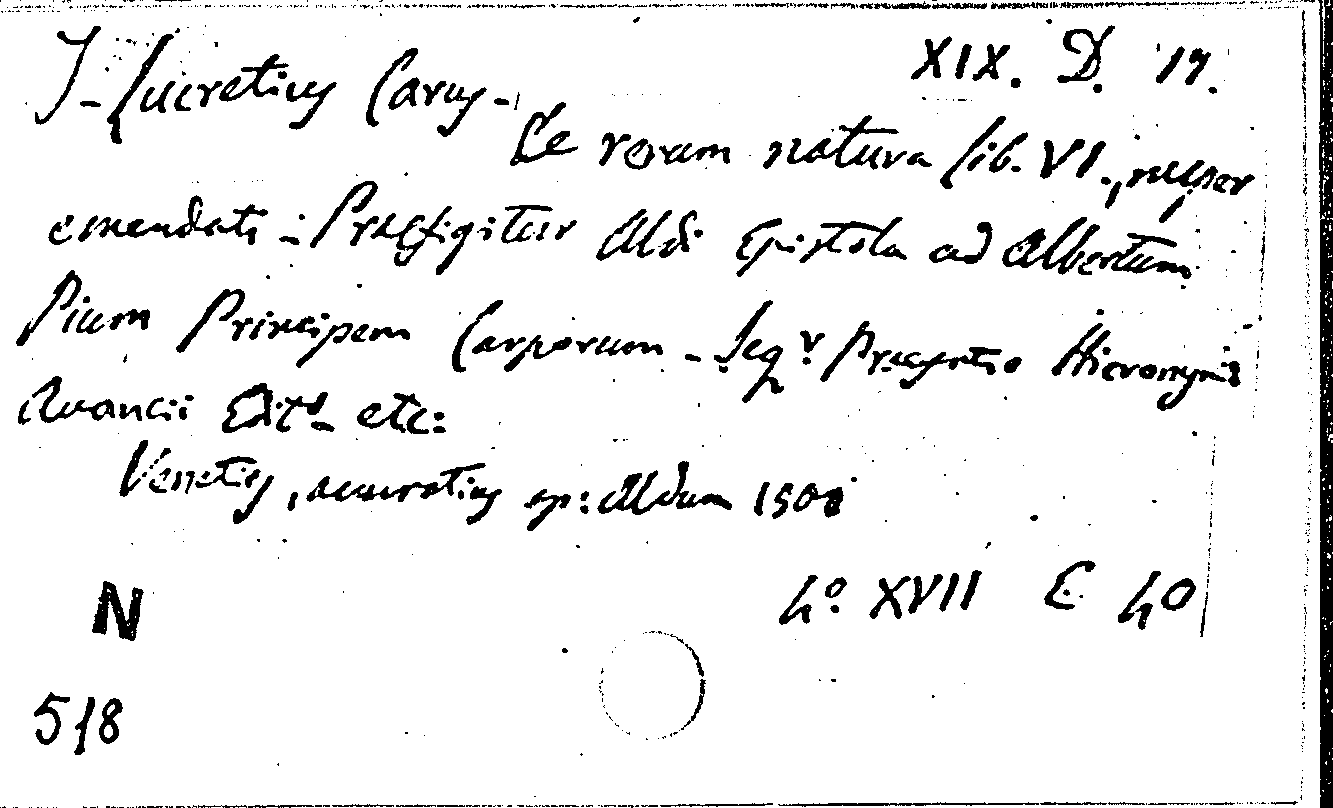 XIX. D. 17.
T. Lucretius Carus -
De rerum natura lib. VI., nuper
emendati - Praefigitur Aldi Epistola ad Albertum
Pium Principem Carporum - Seqr Praefatio Hieronymi
Avancii etc:
Venetiis, accuratius ap: Aldum
4º XVII E 40
N
518